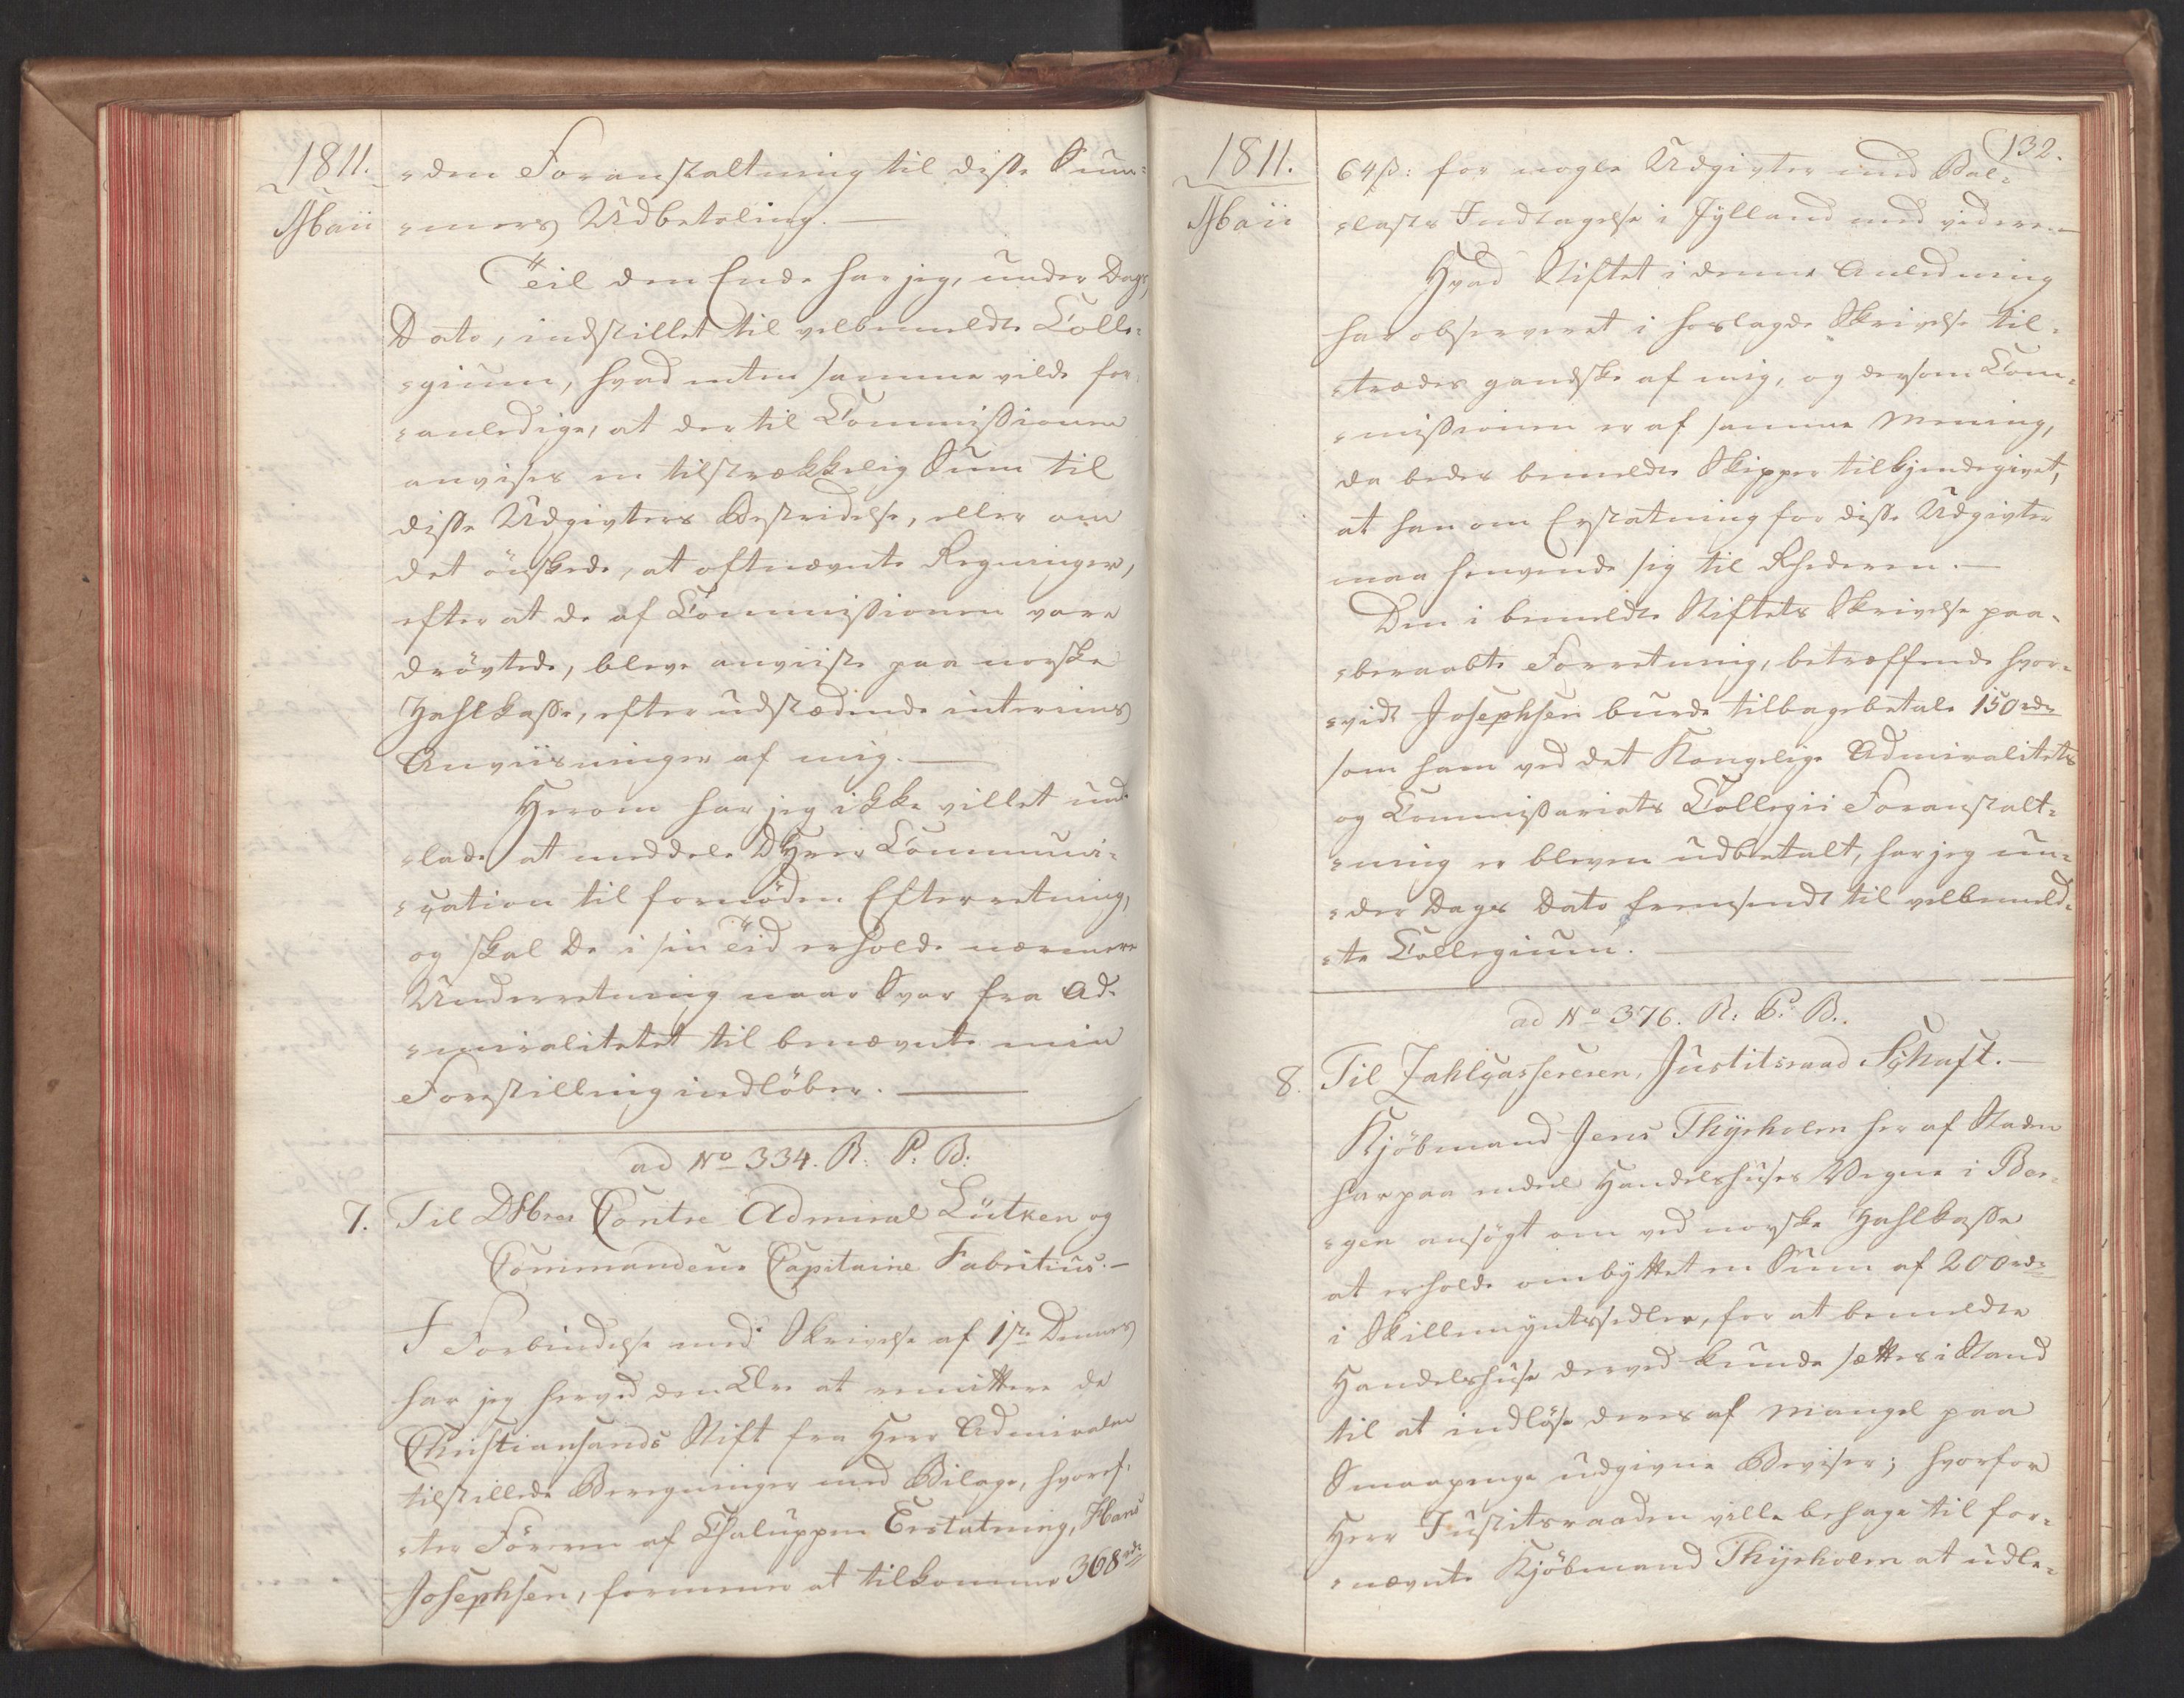 1811.
Maii
=den Foranstaltning til disse Sum=
=mers Udbetaling. —
Til den Ende har jeg, under Dags
Dato, indstillet til velbemeldte Colle=
=gium, hvad enten samme vilde for=
=anledige, at der til Commissionen
anvises en tilstrækkelig Sum til
disse Udgivters Bestridelse, eller om
det önskede, at oftnævnte Regninger,
efter at de af Commissionen vare
drövtede, bleve anviiste paa norske
Zahlkasse, efter udstædende interims
Anviisninger af mig. —
Herom har jeg ikke villet und=
=lade at meddele DHrer Communi=
=cation til fornöden Efterretning,
og skal De i sin Tid erholde nærmere
Underretning naar Svar fra Ad=
=miralitetet til benævnte min
Forestilling indlöber. —
ad No 334. R. P. B:
7. Til DHrer Contre Admiral Lütken og
Commandeur Capitaine Fabritius. —
I Forbindelse med Skrivelse af 1ste Dennes
har jeg herved den Ære at remittere de
Christiansands Stift fra Herr Admiralen
tilstillede Beregninger med Bilage, hvoref=
=ter Föreren af Chaluppen Erstatning, Hans
Josephsen, formener at tilkomme 368 rdr
132.
1811.
Maii
64 ß: for nogle Udgivter med Bal=
=lasts Indtagelse i Jylland med videre. —
Hvad Stiftet i denne Anledning
har observeret i hoslagde Skrivelse til=
=trædes gandske af mig, og dersom Com=
=missionen er af samme Mening,
da bedes bemeldte Skipper tilkjendegivet,
at han om Erstatning for disse Udgivter
maa henvende sig til Rhederen. —
Den i bemeldte Stiftets Skrivelse paa=
=beraabte Forretning, betræffende hvor=
=vidt Josephsen burde tilbagebetale 150 rdr
som ham ved det Kongelige Admiralitets
og Commissariats Collegii Foranstalt=
=ning er bleven udbetalt, har jeg un=
=der Dags Dato fremsendt til velbemeld=
=te Collegium. —
ad No 376. R: P: B.
8. Til Zahlcassereren, Justitsraad Schaft. —
Kjöbmand Jens Thyrholm her af Staden
har paa endeel Handelshuses Vegne i Ber=
=gen ansögt om ved norske Zahlkasse
at erholde ombyttet en Sum af 200 rdr
i Skillemyntssedler, for at bemeldte
Handelshuse derved kunde sættes i Stand
til at indlöse deres af Mangel paa
Smaapenge udgivne Beviser; hvorfor
Herr Justitsraaden ville behage til for=
=nævnte Kjöbmand Thyrholm at udle=